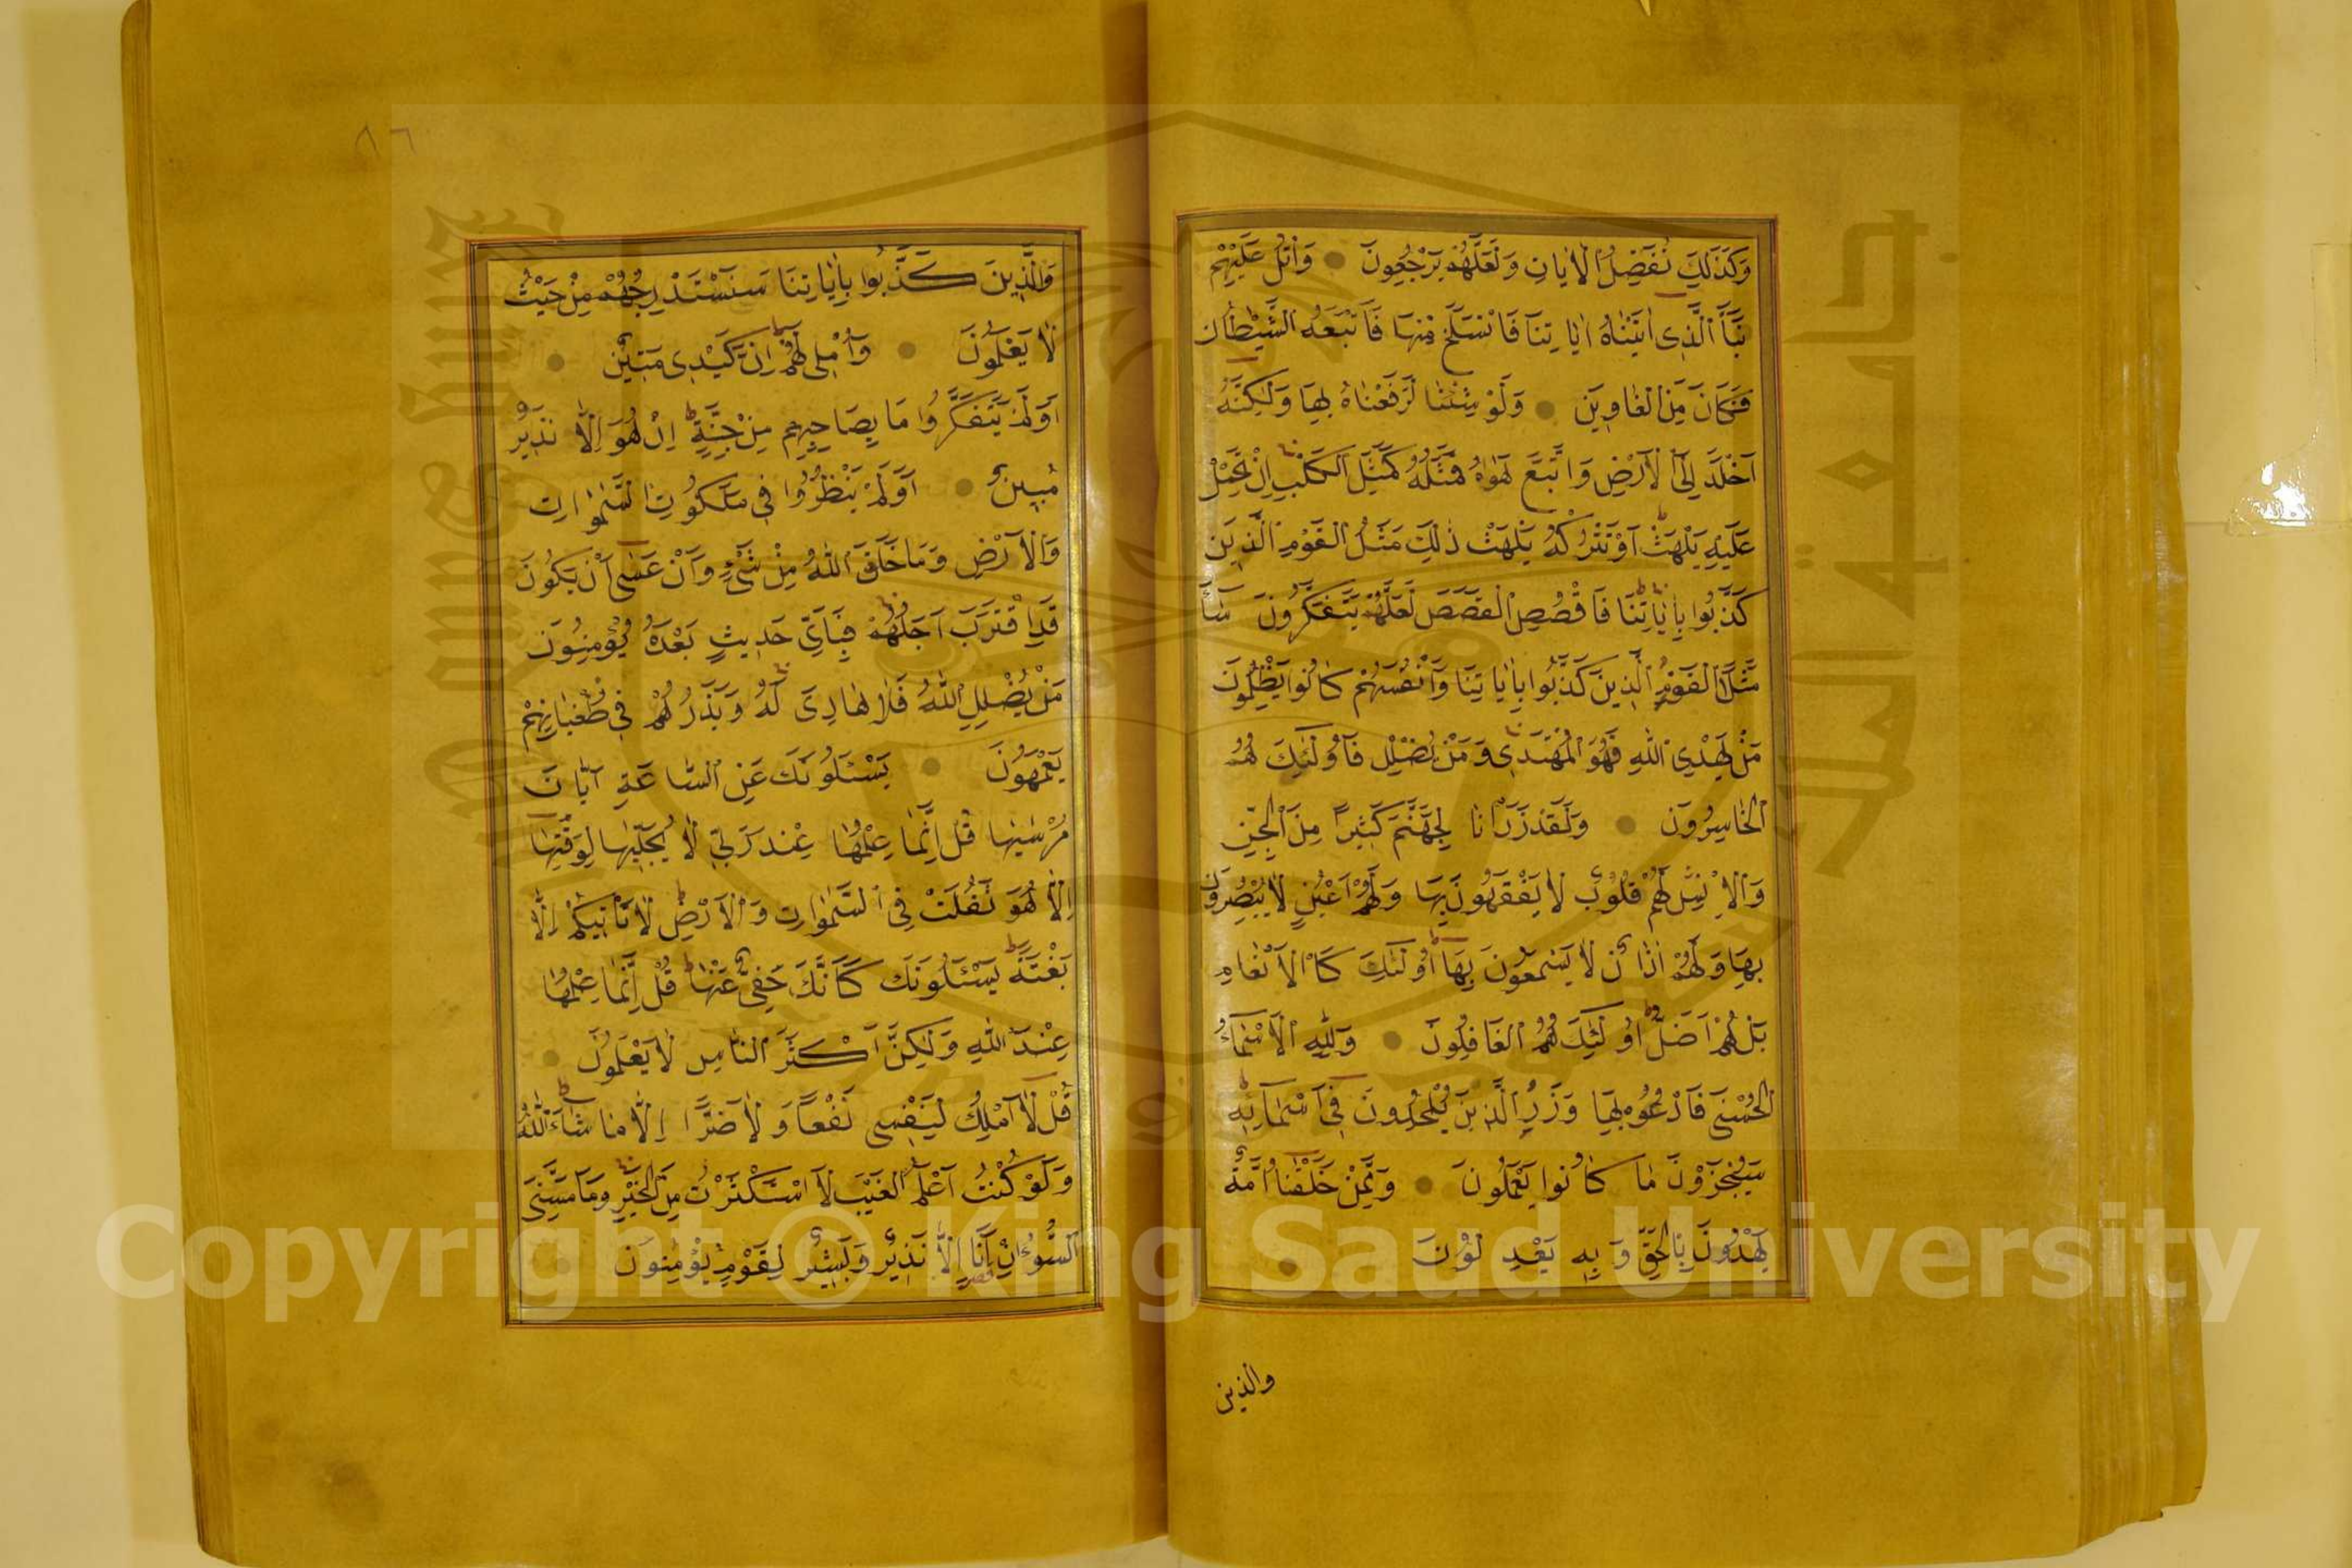 وَكَذٰلِكَ نُفَصِّلُ الْاٰيَاتِ وَلَعَلَّهُمْ يَرْجِعُونَ وَاتْلُ عَلَيْهِمْ
نَبَأَ الَّذِى اٰتَيْنَاهُ اٰيَاتِنَا فَانْسَلَخَ مِنْهَا فَاَتْبَعَهُ الشَّيْطَانُ
فَكَانَ مِنَ الْغَاوِينَ وَلَوْ شِئْنَا لَرَفَعْنَاهُ بِهَا وَلٰكِنَّهُ
اَخْلَدَ اِلَى الْاَرْضِ وَاتَّبَعَ هَوٰيهُ فَمَثَلُهُ كَمَثَلِ الْكَلْبِ اِنْ تَحْمِلْ
عَلَيْهِ يَلْهَثْ اَوْ تَتْرُكْهُ يَلْهَثْ ذٰلِكَ مَثَلُ الْقَوْمِ الَّذِينَ
كَذَّبُوا بِاٰيَاتِنَا فَاقْصُصِ الْقَصَصَ لَعَلَّهُمْ يَتَفَكَّرُونَ سَاۤءَ
مَثَلًا الْقَوْمُ الَّذِينَ كَذَّبُوا بِاٰيَاتِنَا وَاَنْفُسَهُمْ كَانُوا يَظْلِمُونَ
مَنْ يَهْدِى اللّٰهُ فَهُوَ الْمُهْتَدِى وَمَنْ يُضْلِلْ فَاُولٰئِكَ هُمُ
الْخَاسِرُونَ وَلَقَدْ ذَرَاْنَا لِجَهَنَّمَ كَثِيرًا مِنَ الْجِنِّ
وَالْاِنْسِ لَهُمْ قُلُوبٌ لَا يَفْقَهُونَ بِهَا وَلَهُمْ اَعْيُنٌ لَا يُبْصِرُونَ
بِهَا وَلَهُمْ اٰذَانٌ لَا يَسْمَعُونَ بِهَا اُولٰئِكَ كَالْاَنْعَامِ
بَلْ هُمْ اَضَلُّ اُولٰئِكَ هُمُ الْغَافِلُونَ وَلِلّٰهِ الْاَسْمَاۤءُ
الْحُسْنٰى فَادْعُوهُ بِهَا وَذَرُوا الَّذِينَ يُلْحِدُونَ فِى اَسْمَائِهِ
سَيُجْزَوْنَ مَا كَانُوا يَعْمَلُونَ وَمِمَّنْ خَلَقْنَا اُمَّةٌ
يَهْدُونَ بِالْحَقِّ وَبِهِ يَعْدِلُونَ
والذين
٨٦
وَالَّذِينَ كَذَّبُوا بِاٰيَاتِنَا سَنَسْتَدْرِجُهُمْ مِنْ حَيْثُ
لَا يَعْلَمُونَ وَاُمْلِى لَهُمْ اِنَّ كَيْدِى مَتِينٌ
اَوَلَمْ يَتَفَكَّرُوا مَا بِصَاحِبِهِمْ مِنْ جِنَّةٍ اِنْ هُوَ اِلَّا نَذِيرٌ
مُبِينٌ اَوَلَمْ يَنْظُرُوا فِى مَلَكُوتِ السَّمٰوَاتِ
وَالْاَرْضِ وَمَا خَلَقَ اللّٰهُ مِنْ شَىْءٍ وَاَنْ عَسٰى اَنْ يَكُونَ
قَدِ اقْتَرَبَ اَجَلُهُمْ فَبِاَىِّ حَدِيثٍ بَعْدَهُ يُؤْمِنُونَ
مَنْ يُضْلِلِ اللّٰهُ فَلَا هَادِىَ لَهُ وَيَذَرُهُمْ فِى طُغْيَانِهِمْ
يَعْمَهُونَ يَسْئَلُونَكَ عَنِ السَّاعَةِ اَيَّانَ
مُرْسٰيهَا قُلْ اِنَّمَا عِلْمُهَا عِنْدَ رَبِّى لَا يُجَلِّيهَا لِوَقْتِهَا
اِلَّا هُوَ ثَقُلَتْ فِى السَّمٰوَاتِ وَالْاَرْضِ لَا تَاْتِيكُمْ اِلَّا
بَغْتَةً يَسْئَلُونَكَ كَاَنَّكَ حَفِىٌّ عَنْهَا قُلْ اِنَّمَا عِلْمُهَا
عِنْدَ اللّٰهِ وَلٰكِنَّ اَكْثَرَ النَّاسِ لَا يَعْلَمُونَ
قُلْ لَا اَمْلِكُ لِنَفْسِى نَفْعًا وَلَا ضَرًّا اِلَّا مَا شَاۤءَ اللّٰهُ
وَلَوْ كُنْتُ اَعْلَمُ الْغَيْبَ لَاسْتَكْثَرْتُ مِنَ الْخَيْرِ وَمَا مَسَّنِىَ
السُّوۤءُ اِنْ اَنَا اِلَّا نَذِيرٌ وَبَشِيرٌ لِقَوْمٍ يُؤْمِنُونَ
Copyright © King Saud University